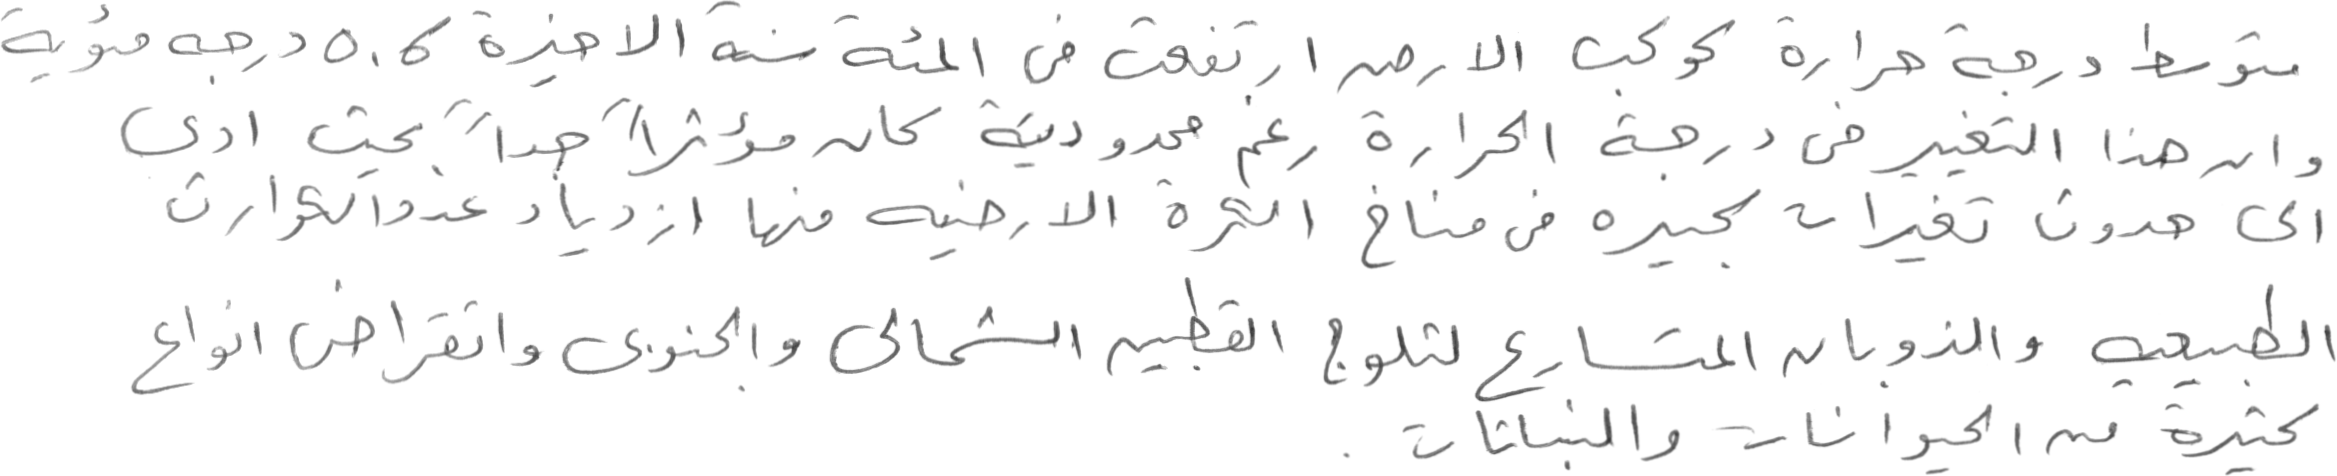 متوسط درجة حرارة كوكب الارض ارتفعت في المئة سنة الاخيرة 0.6 درجه مئوية
وان هذا التغيير في درجة الحرارة رغم محدوديتة كان مؤثراً جداً بحيث ادى
الى حدوث تغيرات كبيره في مناخ الكرة الارضيه منها ازدياد عدد الكوارث
الطبيعيه والذوبان المتسارع لثلوج القطبين الشمالي والجنوبي وانقراض انواع
كثيرة من الحيوانات والنباتات .